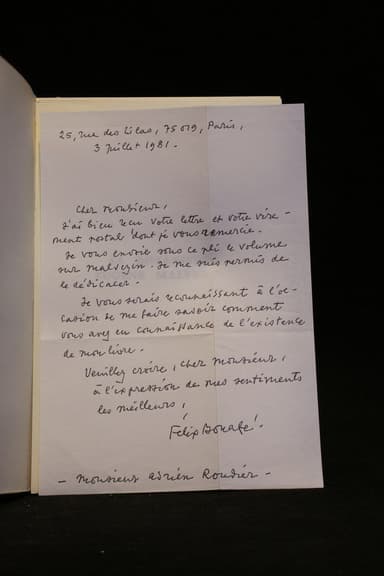 25, rue des Lilas, 75019, Paris,
3 Juillet 1981.
Cher Monsieur,
J'ai bien reçu votre lettre et votre vire-
ment postal dont je vous remercie.
Je vous envoie sous ce pli le volume
sur Malvezin. Je me suis permis de
le dédicacer.
Je vous serais reconnaissant à l'oc-
casion de me faire savoir comment
vous avez eu connaissance de l'existence
de mon livre.
Veuillez croire, cher Monsieur,
à l'expression de mes sentiments
les meilleurs,
Felix Bonafé
- Monsieur Adrien Roudiér -